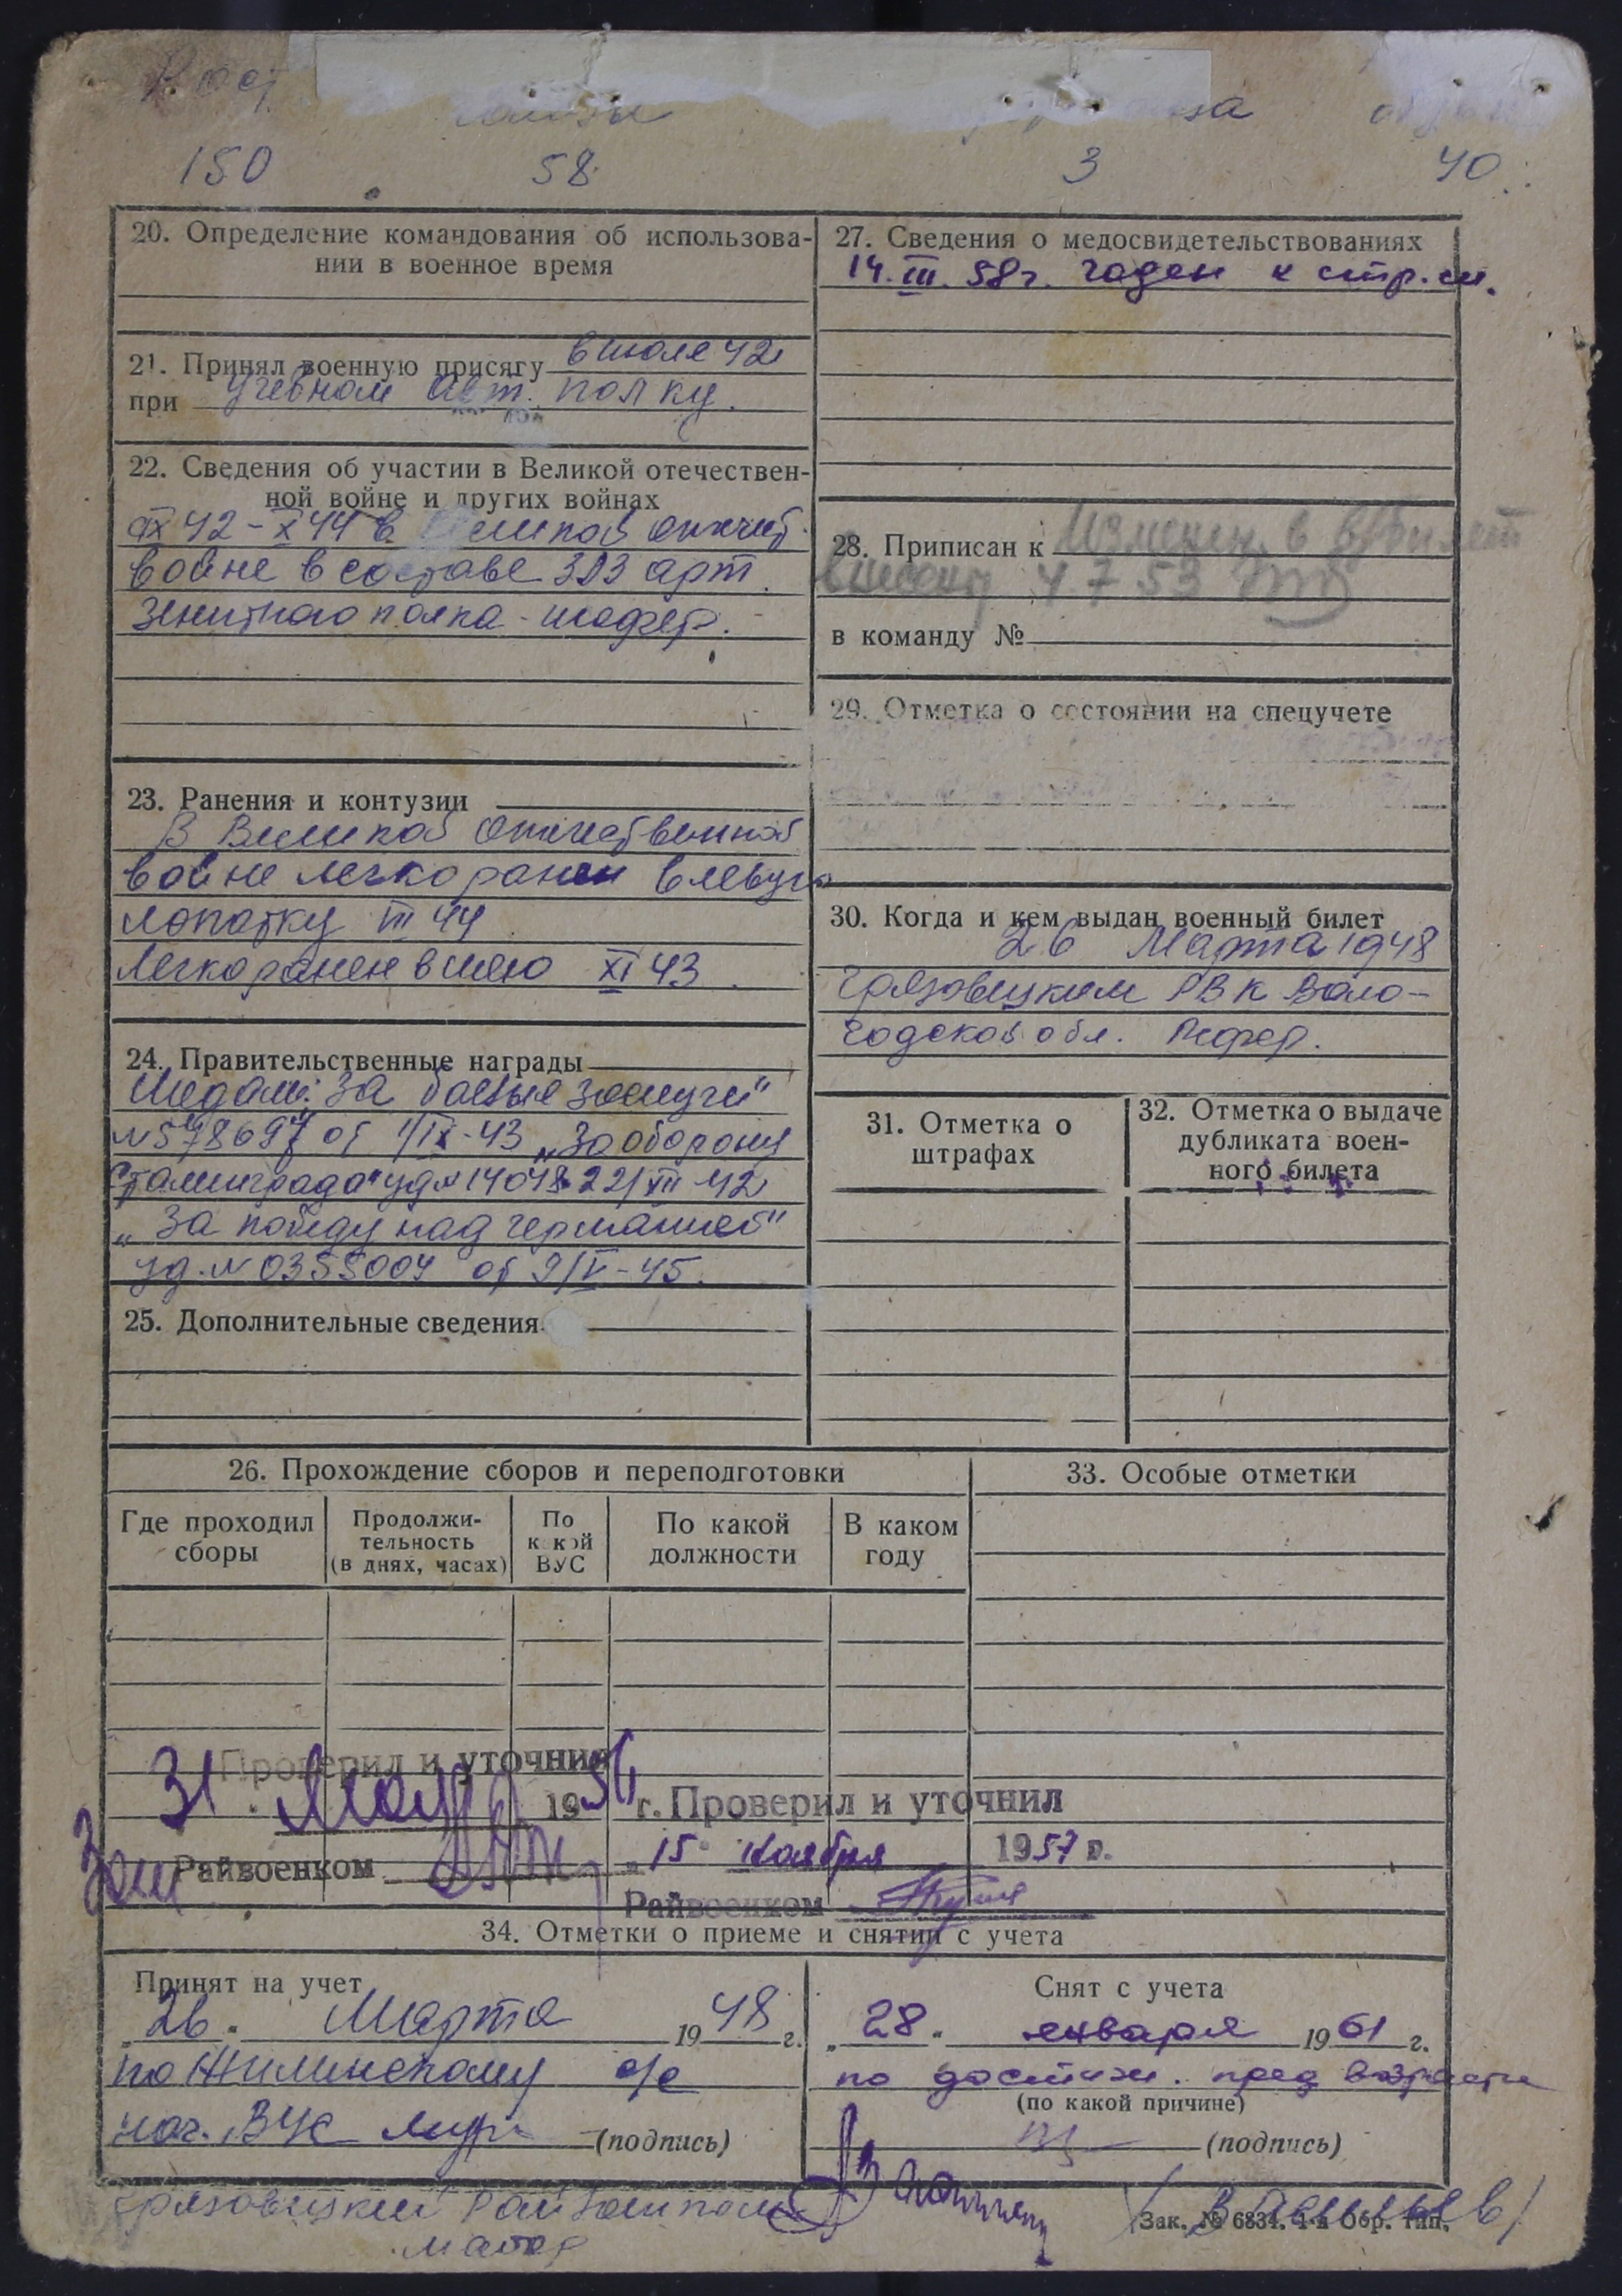 Рост
150 58 3 40
20. Определение командования об использова-
нии в военное время
21. Принял военную присягу в июле 42
при учебном авт. полку.
22. Сведения об участии в Великой отечествен-
ной войне и других войнах
IX 42 - X 44 в Великой отечест.
войне в составе 393 арт.
зенитного полка - шофер.
23. Ранения и контузии
В Великой Отечественной
войне легко ранен в левую
лопатку III 44
Легко ранен в шею XI 43.
24. Правительственные награды
Медали: За боевые заслуги"
от 1/IX-43 „За оборону
Сталинграда" уд № 14048 22/XII 42
„За победу над германией"
уд. № 0355004 от 9/V-45.
25. Дополнительные сведения
27. Сведения о медосвидетельствованиях
14.III.58г. годен к стр. сл.
28. Приписан к
4 7 53
в команду №
29. Отметка о состоянии на спецучете
30. Когда и кем выдан военный билет
26 Марта 1948
Грязовецким РВК Воло-
годской обл.
31. Отметка о
штрафах
32. Отметка о выдаче
дубликата воен-
ного билета
26. Прохождение сборов и переподготовки
Где проходил
сборы
Продолжи-
тельность
(в днях, часах)
По
какой
ВУС
По какой
должности
В каком
году
33. Особые отметки
Проверил и уточнил
31 1956 г.
Зам Райвоенком
Проверил и уточнил
„15" ноября 1957 г.
Райвоенком
34. Отметки о приеме и снятии с учета
Принят на учет
„26" Марта 1948 г.
по Жилинскому с/с
нач. ВУС (подпись)
Снят с учета
„28" января 1961 г.
по достиж. пред возраста
(по какой причине)
(подпись)
Грязовецкий Райвоенком
майор
/Васильев/
Зак. № 6834. 1-я Обр. тип.